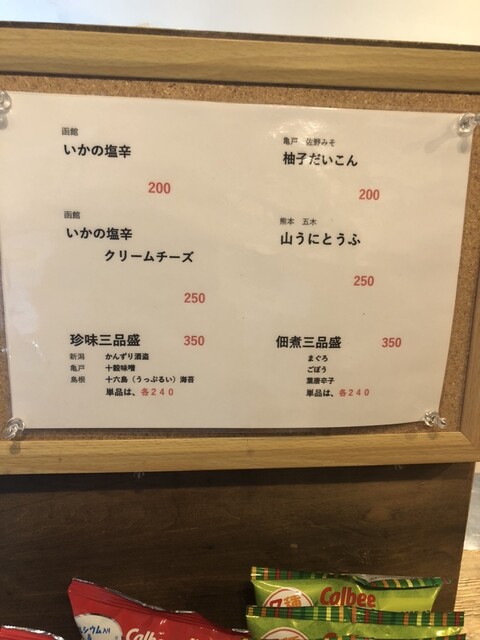 函館
いかの塩辛
200
亀戸 佐野みそ
柚子だいこん
200
函館
いかの塩辛
クリームチーズ
250
熊本 五木
山うにとうふ
250
珍味三品盛 350
新潟 かんずり酒盗
亀戸 十穀味噌
島根 十六島（うっぷるい）海苔
単品は、各240
佃煮三品盛 350
まぐろ
ごぼう
葉唐辛子
単品は、各240
シウム入り
Calbee
7種
Calbee